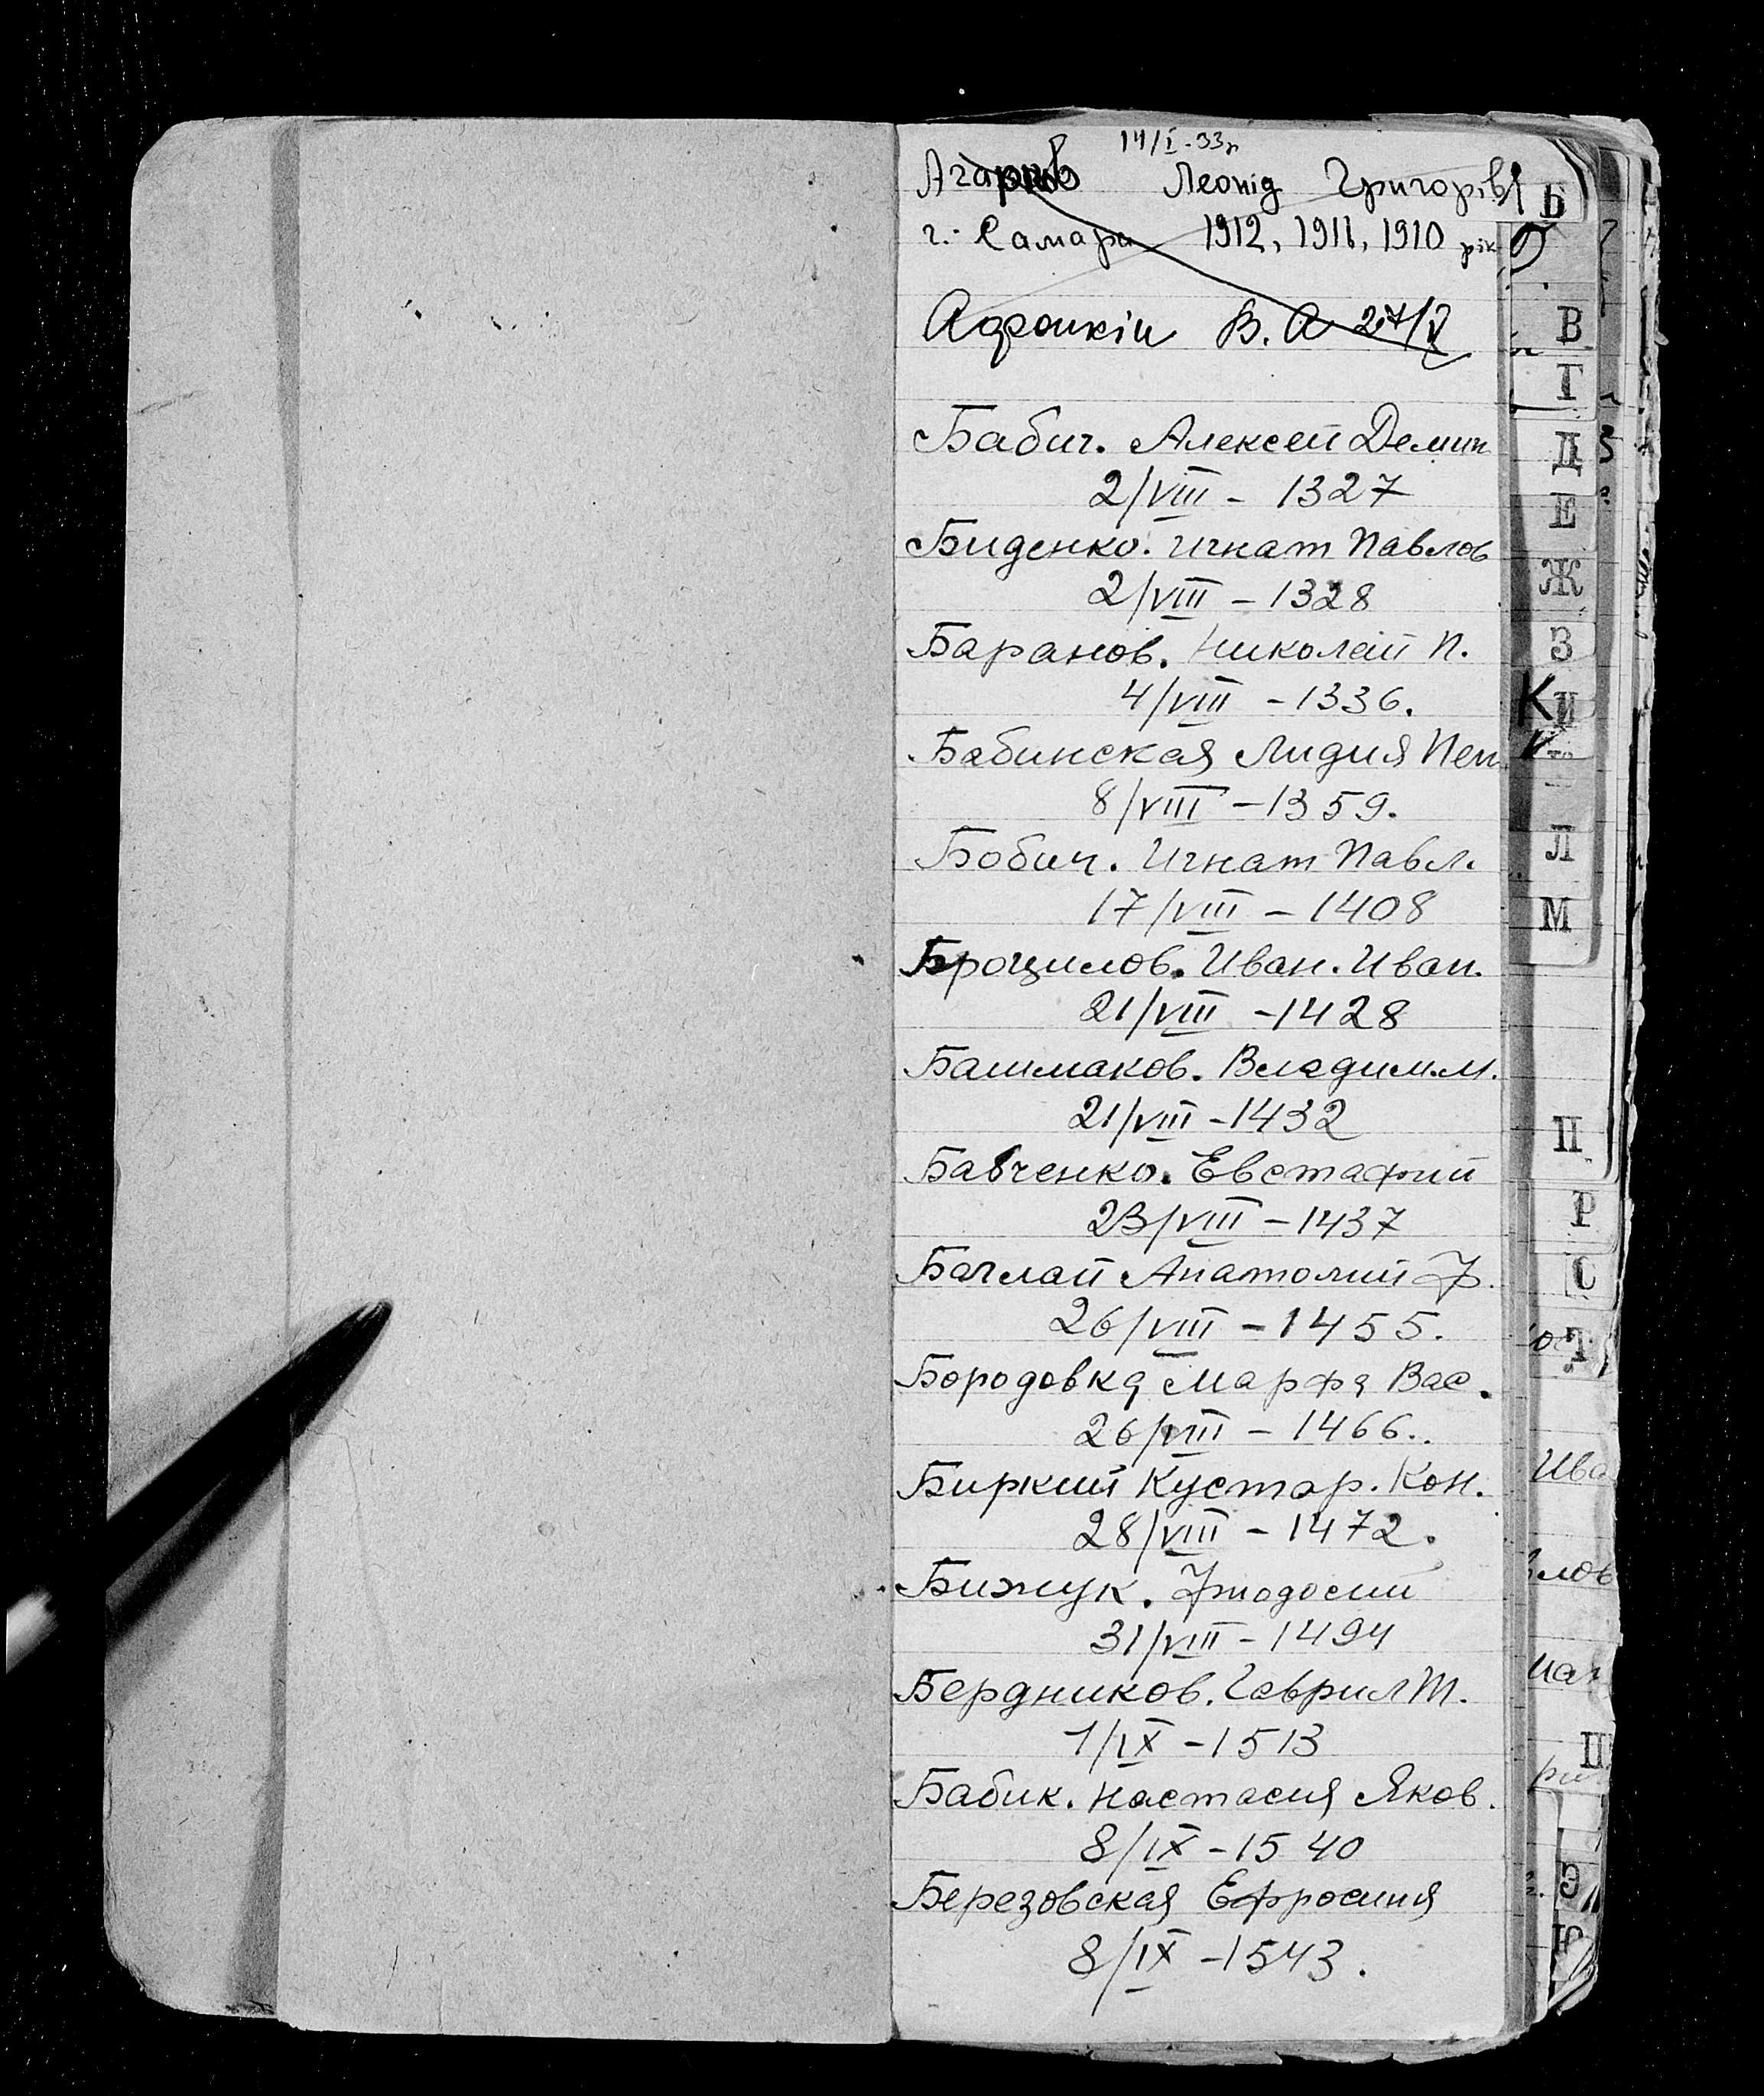 14/I-33р
Агарков Леонід Григорів
г. Самара 1912, 1911, 1910 рік
Афонкін В. А 27/V
Бабич. Алексей Демин
2/VIII - 1327
Биденко. Игнат Павлов
2/VIII - 1328
Баранов. Николай П.
4/VIII - 1336.
Бабинская Лидия Пет
8/VIII - 1359.
Бобич. Игнат Павл.
17/VIII - 1408
Брощилов. Иван. Иван.
21/VIII - 1428
Башмаков. Владим. М.
21/VIII - 1432
Бавченко. Евстафий
23/VIII - 1437
Баглай Анатолий Ф.
26/VIII - 1455.
Бородовка Марфа Вас.
26/VIII - 1466..
Биркий Кустар. Кон.
28/VIII - 1472.
Бижук. Феодосий
31/VIII - 1494
Бердников. Гаврил Т.
1/IX - 1513
Бабик. Настасия Яков.
8/IX - 1540
Березовская Ефросиния
8/IX - 1543.
Б
В
Г
Д
Е
Ж
З
К И
Л
М
П
Р
С
Т
Ива
лов
Э
Ю